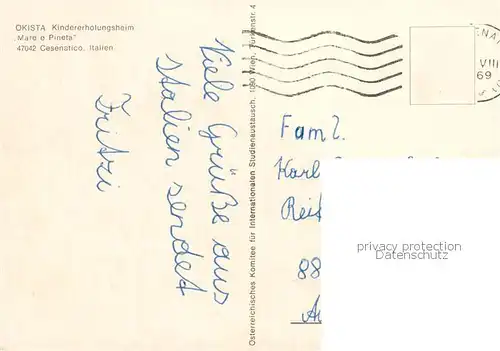 OKISTA Kindererholungsheim
„Mare e Pineta"
47042 Cesenatico, Italien
Viele Grüße aus
Italien sendet
Fritzi
Österreichisches Komitee für Internationalen Studienaustausch, 1080 Wien, Türkenstr. 4
VIII
69
Fam.
Karl
88
privacy protection
Datenschutz